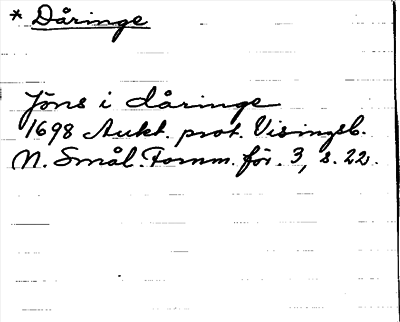 * Dåringe
Jöns i dåringe
1698 Aukt. prot. Visingsb.
N. Smål. Fornm. för. 3, s. 22.